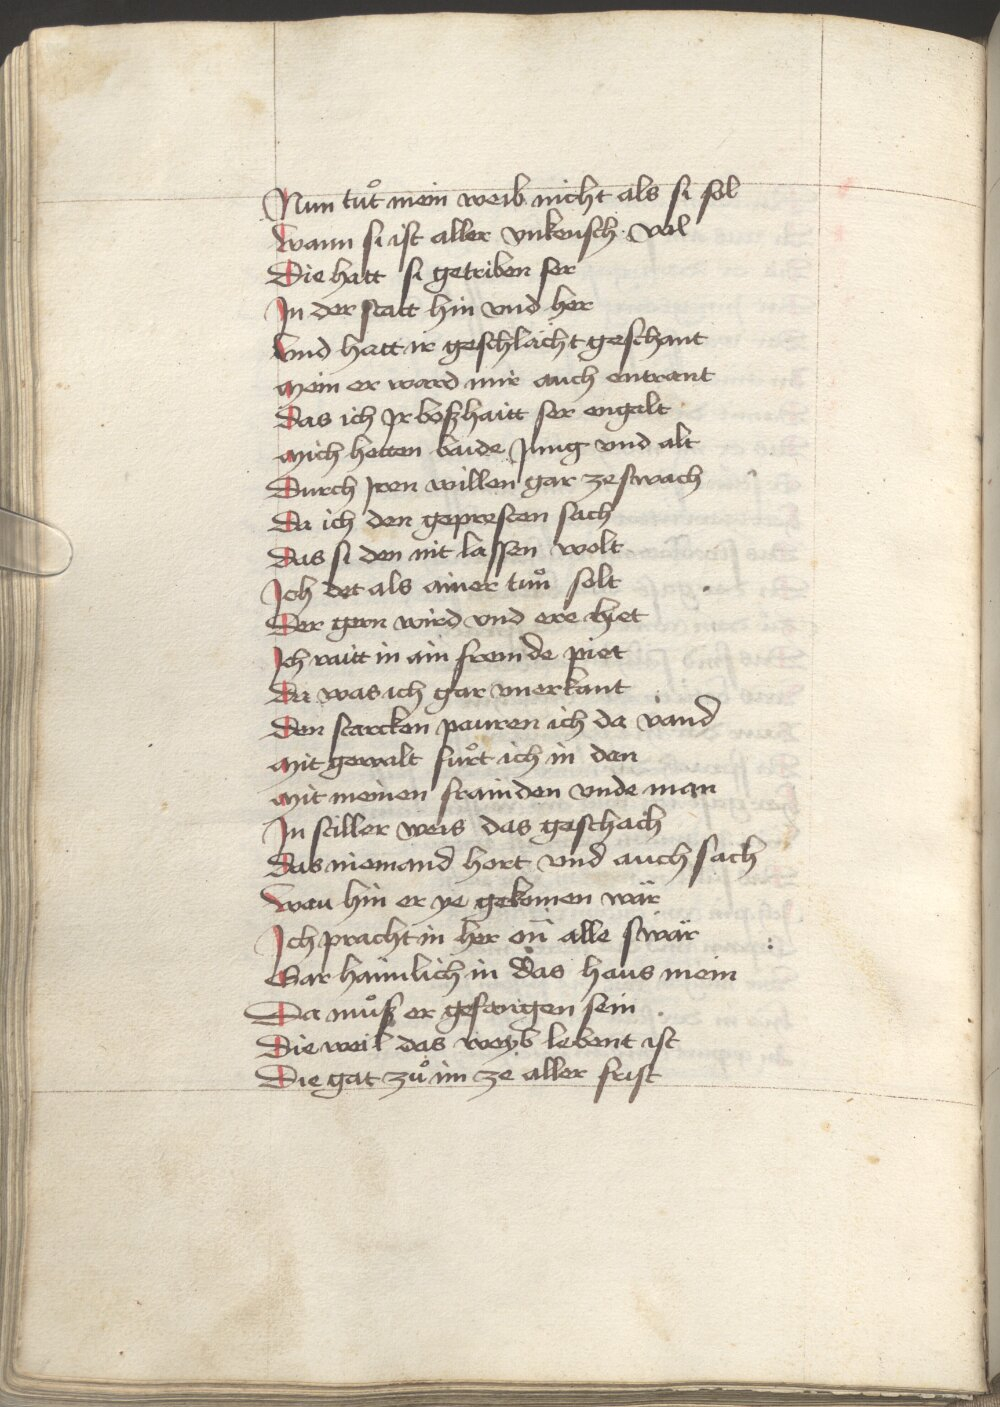 Nun tuͦt mein weib nicht als si sol
Wann si ist aller vnkeusch vol
Die hatt si getriben ser
In der statt hin vnd her
Vnd hatt ir geschlächt geschant
Mein er ward mir auch entrant
Das ich Jr boßhaitt ser engalt
Mich hetten baide Jung vnd alt
Durch Jren willen gar ze swach
Da ich den gepresten sach
Das si den nit lassen wolt
Ich det als ainer tuͦn solt
Der gern wird vnd ere hiet
Ich raitt in ain fremde piet
Da was ich gar vnerkant
Den starcken pauren ich da vand
Mit gewalt fuͦrt ich in den
Mit meinen frainden vnde man
In stiller weis das geschach
Das niemand hort vnd auch sach
Wau hin er ye gekomen wär
Ich pracht in her on alle swär
Gar haimlich in das haus mein
Da muͦß er gefangen sein
Die weil das weyb lebent ist
Die gat zuͦ im ze aller frist